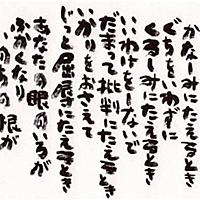 かなしみにたえるとき
ぐちをいわずに
くるしみにたえるとき
いいわけをしないで
だまって批判にたえるとき
いかりをおさえて
じっと屈辱にたえるとき
あなたの眼のいろが
ふかくなり
いのちの根が